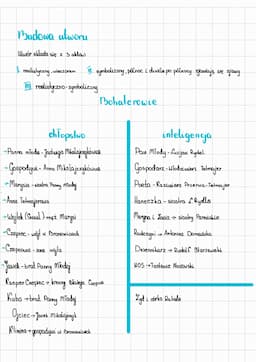 Budowa utworu
Utwór składa się z 3 aktów
I realistyczny, wieczorem II symboliczny, północ i chwila po północy, zjawiają się zjawy
III realistyczno-symboliczny
Bohaterowie
chłopstwo
inteligencja
Panna młoda - Jadwiga Mikołajczykówna
Gospodyni - Anna Mikołajczykówna
Marysia - siostra Panny młody
Anna Tetmajerowa
Wojtek
mąż Marysi
Czepiec - wójt w Bronowicach
Czepcowa - żona wójta
Jasiek - brat Panny Młodej
Kasper Czepiec
Kuba - brat Panny Młodej
Ojciec - Jacek Mikołajczyk
Klimina - gospodyni w Bronowicach
Pan Młody - Lucjan Rydel
Gospodarz - Włodzimierz Tetmajer
Poeta - Kazimierz Przerwa-Tetmajer
Haneczka - siostra L. Rydla
Maryna i Zosia - siostry
Radczyni - Antonina Domańska
Dziennikarz - Rudolf Starzewski
NOS - Tadeusz Noskowski
Żyd i córka Rachela